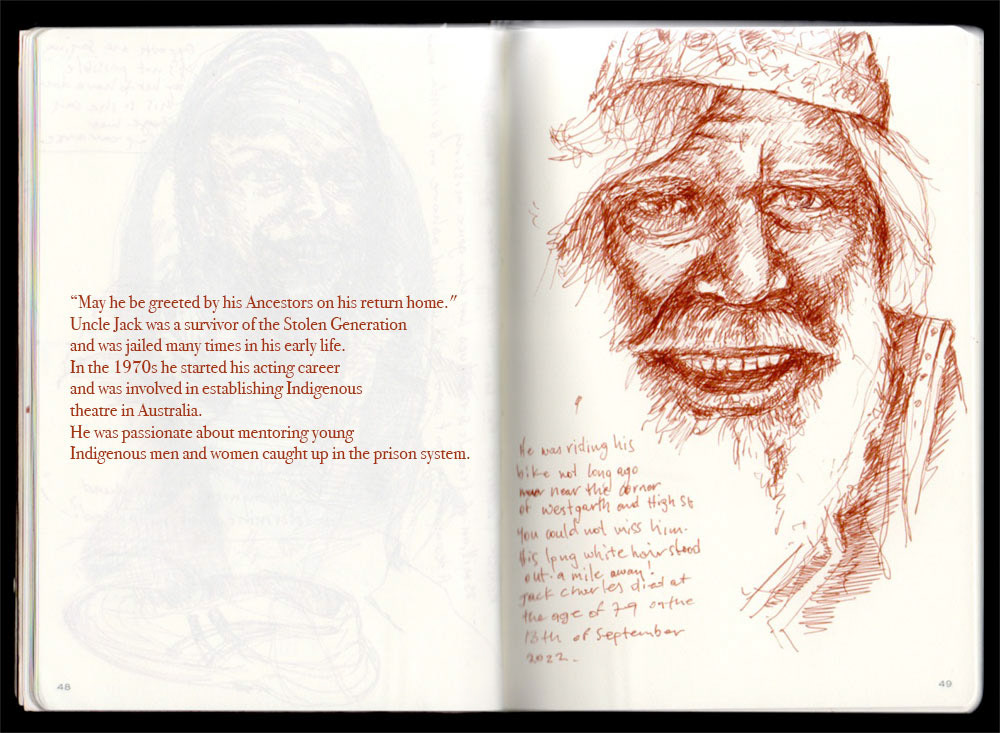 “May he be greeted by his Ancestors on his return home."
Uncle Jack was a survivor of the Stolen Generation
and was jailed many times in his early life.
In the 1970s he started his acting career
and was involved in establishing Indigenous
theatre in Australia.
He was passionate about mentoring young
Indigenous men and women caught up in the prison system.
48
He was riding his
bike not long ago
near the corner
of Westgarth and High St
You could not miss him.
His long white hair stood
out a mile away!
Jack Charles died at
the age of 79 on the
13th of September
2022.
49